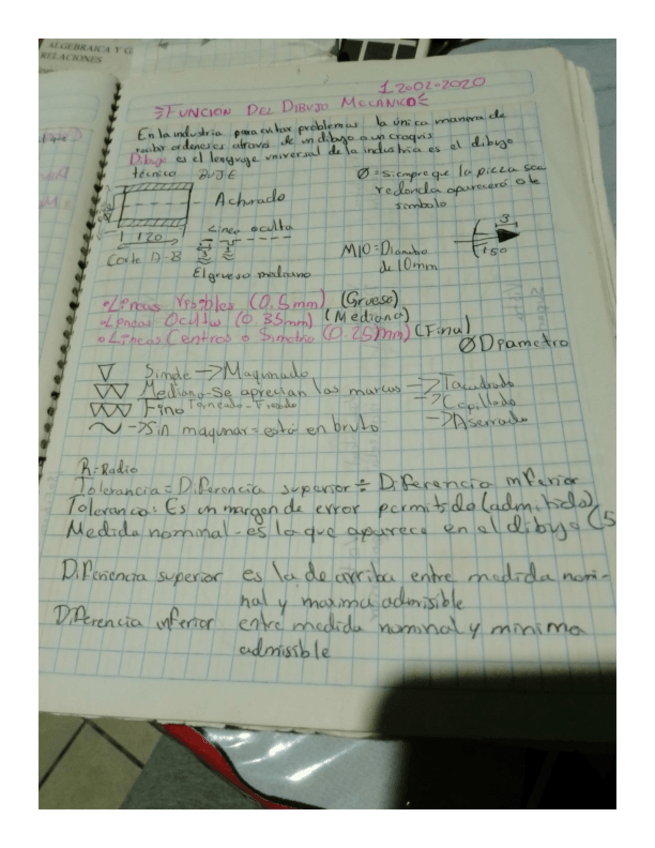 ALGEBRAICA Y G
RELACIONES
12-02-2020
FUNCION DEL DIBUJO MECANICO
En la industria para evitar problemas la única manera de
recibir ordenes es atravez de un dibujo o un croquis
Dibujo es el lenguaje universal de la industria es el dibujo
técnico BUJE
Ø = siempre que la pieza sea
redonda aparecerá este
simbolo
Achurado
120
Corte A-B
Linea oculta
El grueso mediano
M10 = Diametro
de 10mm
3
150
• Líneas Visibles (0.5mm) (Grueso)
• Líneas Ocultas (0.35mm) (Mediano)
• Líneas Centros o Simetria (0.25mm) (Fina)
Ø Diametro
Simple -> Maquinado
Mediano - Se aprecian las marcas -> Taladrado
Fino Torneado - Fresado -> Cepillado
-> Sin maquinar = está en bruto -> Aserrado
R: Radio
Tolerancia = Diferencia superior ÷ Diferencia inferior
Tolerancia: Es un margen de error permitido (admitido)
Medida nominal - es la que aparece en el dibujo (5
Diferencia superior es la de arriba entre medida nomi-
nal y maxima admisible
Diferencia inferior entre medida nominal y minima
admisible